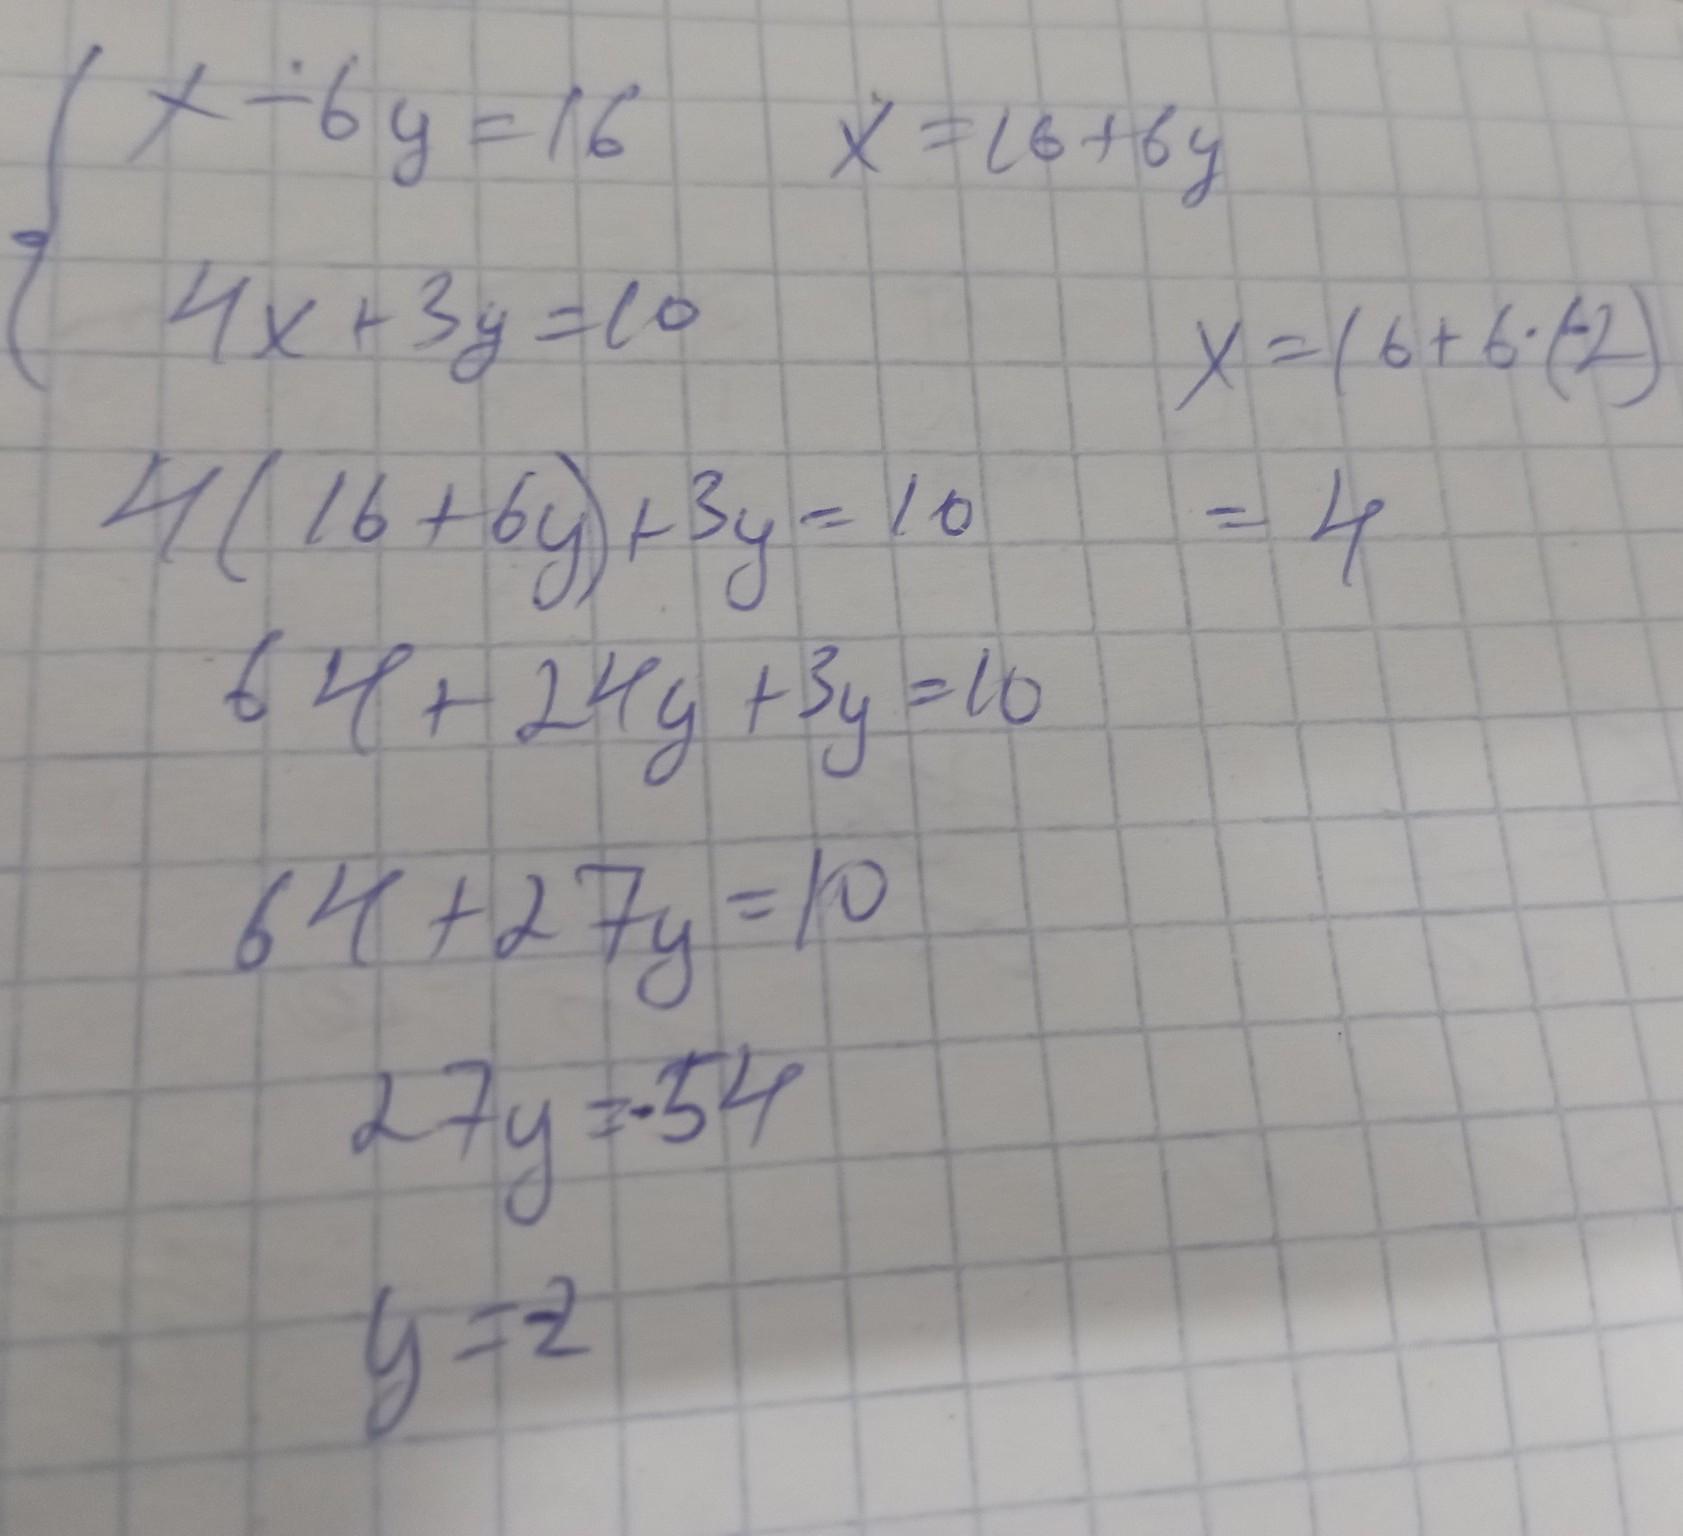 x - 6y = 16
x = 16 + 6y
4x + 3y = 10
x = 16 + 6·(-2)
= 4
4(16 + 6y) + 3y = 10
64 + 24y + 3y = 10
64 + 27y = 10
27y = -54
y = -2